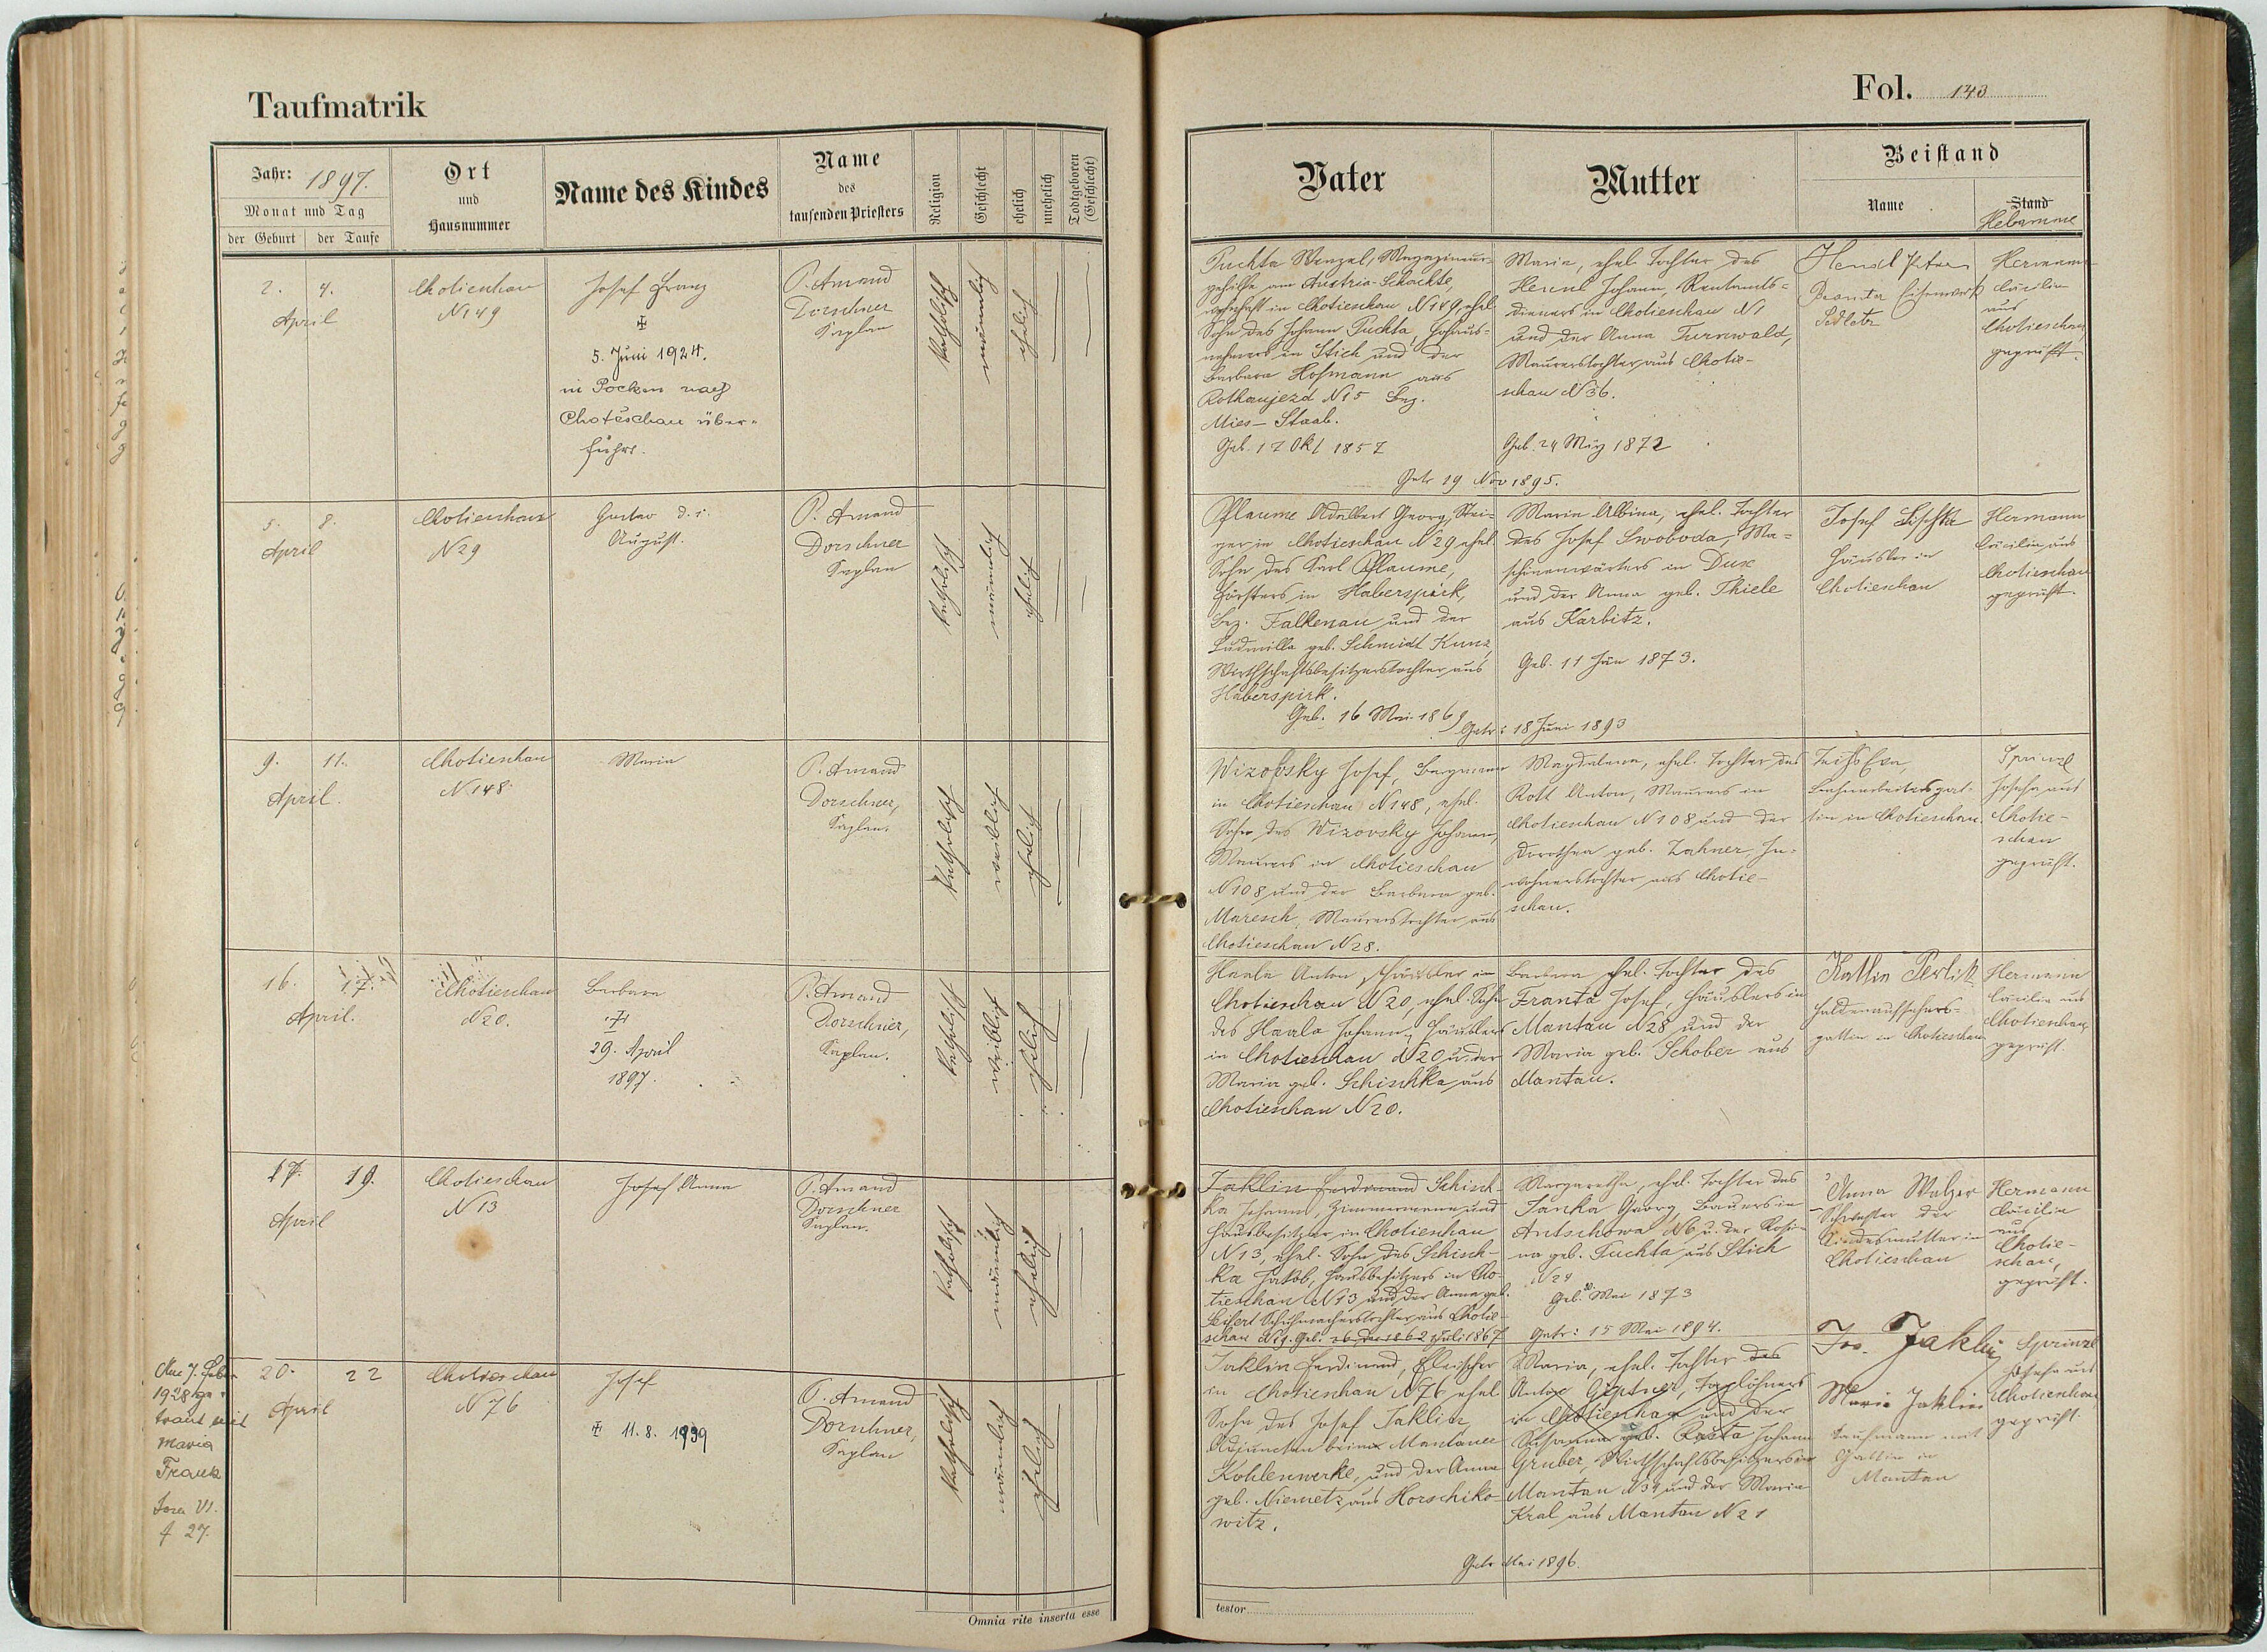 Taufmatrik
Jahr: 1897.
Monat und Tag
der Geburt
der Taufe
Ort
und
Hausnummer
Name des Kindes
Name
des
taufenden Priesters
Religion
Geschlecht
ehelich
unehelich
Todtgeboren
(Geschlecht)
2. 4.
April
Chotieschau
N 149
Josef Franz
5. Juni 1924.
in Pocken nach
Choteschau über-
führt.
P. Amand
Dorschner
Kaplan
katholisch
männlich
ehelich
5. 8.
April
Chotieschau
N 29
Gustav d. i.
August.
P. Amand
Dorschner
Kaplan
katholisch
männlich
ehelich
9. 11.
April.
Chotieschau
N 148
Maria
P. Amand
Dorschner,
Kaplan.
katholisch
weiblich
ehelich
16. 17.
April.
Chotieschau
N 20.
Barbara
29. April
1897.
P. Amand
Dorschner,
Kaplan.
katholisch
weiblich
ehelich
17. 19.
April
Chotieschau
N 13
Josef Anna
P. Amand
Dorschner
Kaplan.
katholisch
männlich
ehelich
1928
traut mit
Maria
Frank
f 27.
20. 22
April
Chotieschau
N 76
Josef
11. 8. 1939
P. Amand
Dorschner,
Kaplan
katholisch
männlich
ehelich
Omnia rite inserta esse
Fol. 143
Vater
Mutter
Beistand
Name
Stand
Hebamme
Puchta Wenzel, Magazineur-
gehilfe am Austria-Schachte,
wohnhaft in Chotieschau N 149, ehel.
Sohn des Johann Puchta,
in Stich und der
Barbara Hofmann aus
Rothaujezd N 15 Bez.
Mies-Staab.
Geb. 17 Okt 1857
Maria, ehel. Tochter des
Hendl Johann, Rentamts-
dieners in Chotieschau N 1
und der Anna Turnwald,
Maurerstochter aus Chotie-
schau N 36.
Geb. 24 März 1872
Getr 19 Nov 1895.
Hendl Peter
Beamter Eisenwerk
Sedletz
Hermann
Cäcilia
aus
Chotieschau
geprüft.
Pflaume Adalbert Georg, Stei-
ger in Chotieschau N 29 ehel.
Sohn des Karl Pflaume,
Försters in Haberspirk,
Bez. Falkenau und der
Ludmilla geb. Schmidt Kunz,
Wirthschaftsbesitzerstochter aus
Haberspirk.
Geb. 16 Mai 1869
Maria Albina, ehel. Tochter
des Josef Swoboda, Ma-
schinenwärters in Dux
und der Anna geb. Thiele
aus Karbitz.
Geb. 11 Jän 1873.
Getr: 18 Juni 1893
Josef Lischka
Häusler in
Chotieschau
Hermann
Cäcilia aus
Chotieschau
geprüft.
Wizovsky Josef, Bergmann
in Chotieschau N 148, ehel.
Sohn des Wizovsky Johann,
Maurers in Chotieschau
N 108 und der Barbara geb.
Maresch, Maurerstochter aus
Chotieschau N 28.
Magdalena, ehel. Tochter des
Rott Anton, Maurers in
Chotieschau N 108 und der
Dorothea geb. Zahner, In-
wohnerstochter aus Chotie-
schau.
Eva,
Bahnarbeitersgat-
tin in Chotieschau.
Sprinzl
Josefa aus
Chotie-
schau
geprüft.
Haala Anton, Häusler in
Chotieschau N 20, ehel. Sohn
des Haala Johann, Häuslers
in Chotieschau N 20 u. der
Maria geb. Schischka aus
Chotieschau N 20.
Barbara ehel. Tochter des
Franta Josef, Häuslers in
Mantau N 28 und der
Maria geb. Schober aus
Mantau.
Kathin Perlik
Haldenaufsehers-
gattin in Chotieschau
Hermann
Cäcilia aus
Chotieschau
geprüft.
Jaklin Ferdinand Schisch-
ka Johann, Zimmermann und
Hausbesitzer in Chotieschau
N 13, ehel. Sohn des Schisch-
ka Jakob, Hausbesitzers in Cho-
tieschau N 13 und der Anna geb.
Seifert Schuhmacherstochter aus Chotie-
schau N 9. Geb. 26 Dez 1862 Juli 1867
Margaretha, ehel. Tochter des
Janka Georg, Bauers in
Autschowa N 6 u. der Rosi-
na geb. Puchta aus Stich
N 24
Geb. Mai 1873
Getr: 15 Mai 1894.
Anna Walzer
Schwester der
Kindesmutter in
Chotieschau
Hermann
Cäcilia
aus
Chotie-
schau,
geprüft.
Jaklin Ferdinand, Fleischer
in Chotieschau N 76 ehel
Sohn des Josef Jaklin,
Adjuncten beim Mantauer
Kohlenwerke, und der Anna
geb. Niemetz aus Horschiko-
witz.
Maria, ehel. Tochter des
Anton Giptner, Taglöhners
in Chotieschau und der
Susanna geb. Rasta Johann
Gruber, Wirthschaftsbesitzers in
Mantau N 34 und der Maria
Kral aus Mantau N 21
Getr Mai 1896.
Jos. Jaklin
Maria Jaklin
Kaufmann mit
Gattin in
Mantau
Sprinzl
Josefa aus
Chotieschau
geprüft.
testor